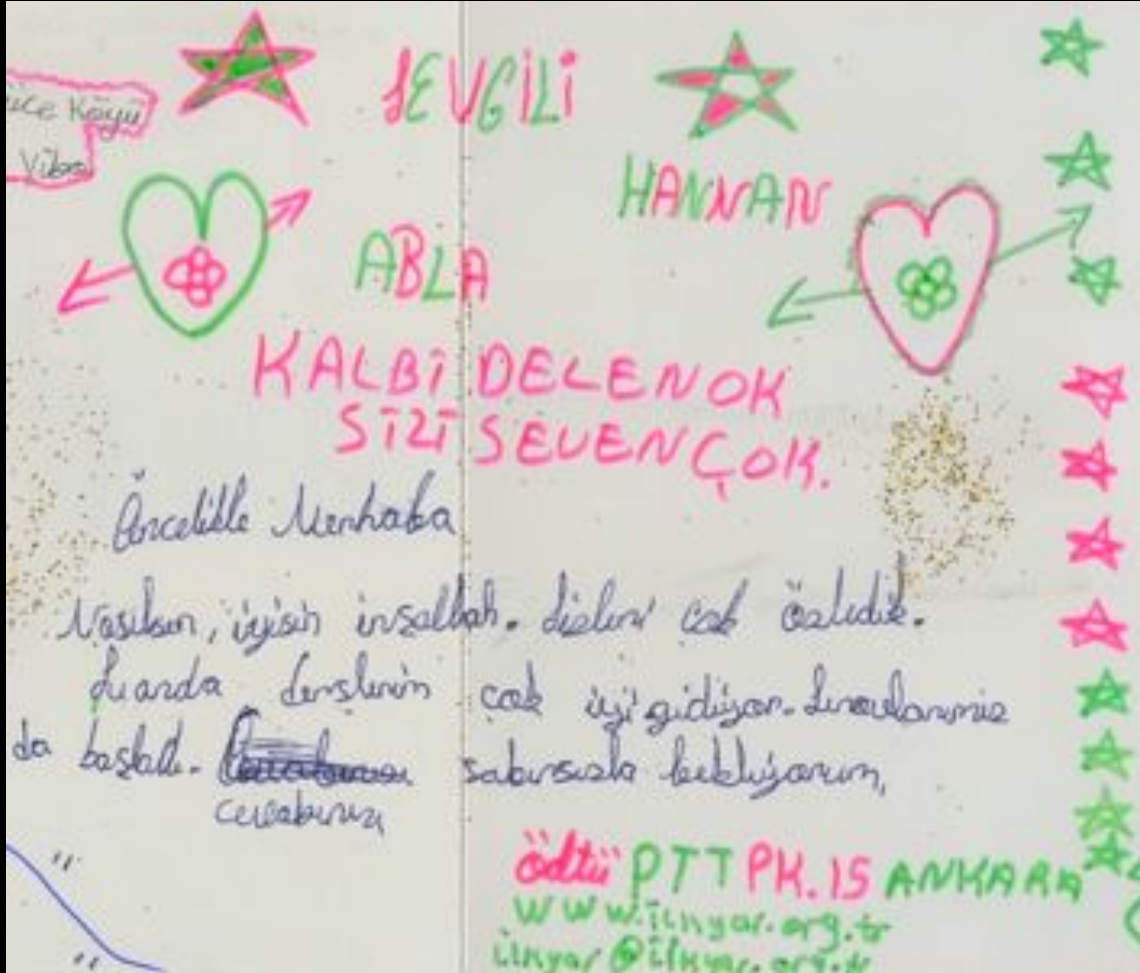 SEVGİLİ
Köyü
HANNAN
ABLA
KALBİ DELEN OK
SİZİ SEVEN ÇOK.
Öncelikle Merhaba
Nasılsın, iyisin inşallah. Sizleri çok özledik.
Şu anda derslerim çok iyi gidiyor. Sınavlarımız
da başladı. sabırsızla bekliyorum,
cevabınızı
ödtü PTT PK.15 ANKARA
www.ilkyar.org.tr
ilkyar@ilkyar.org.tr